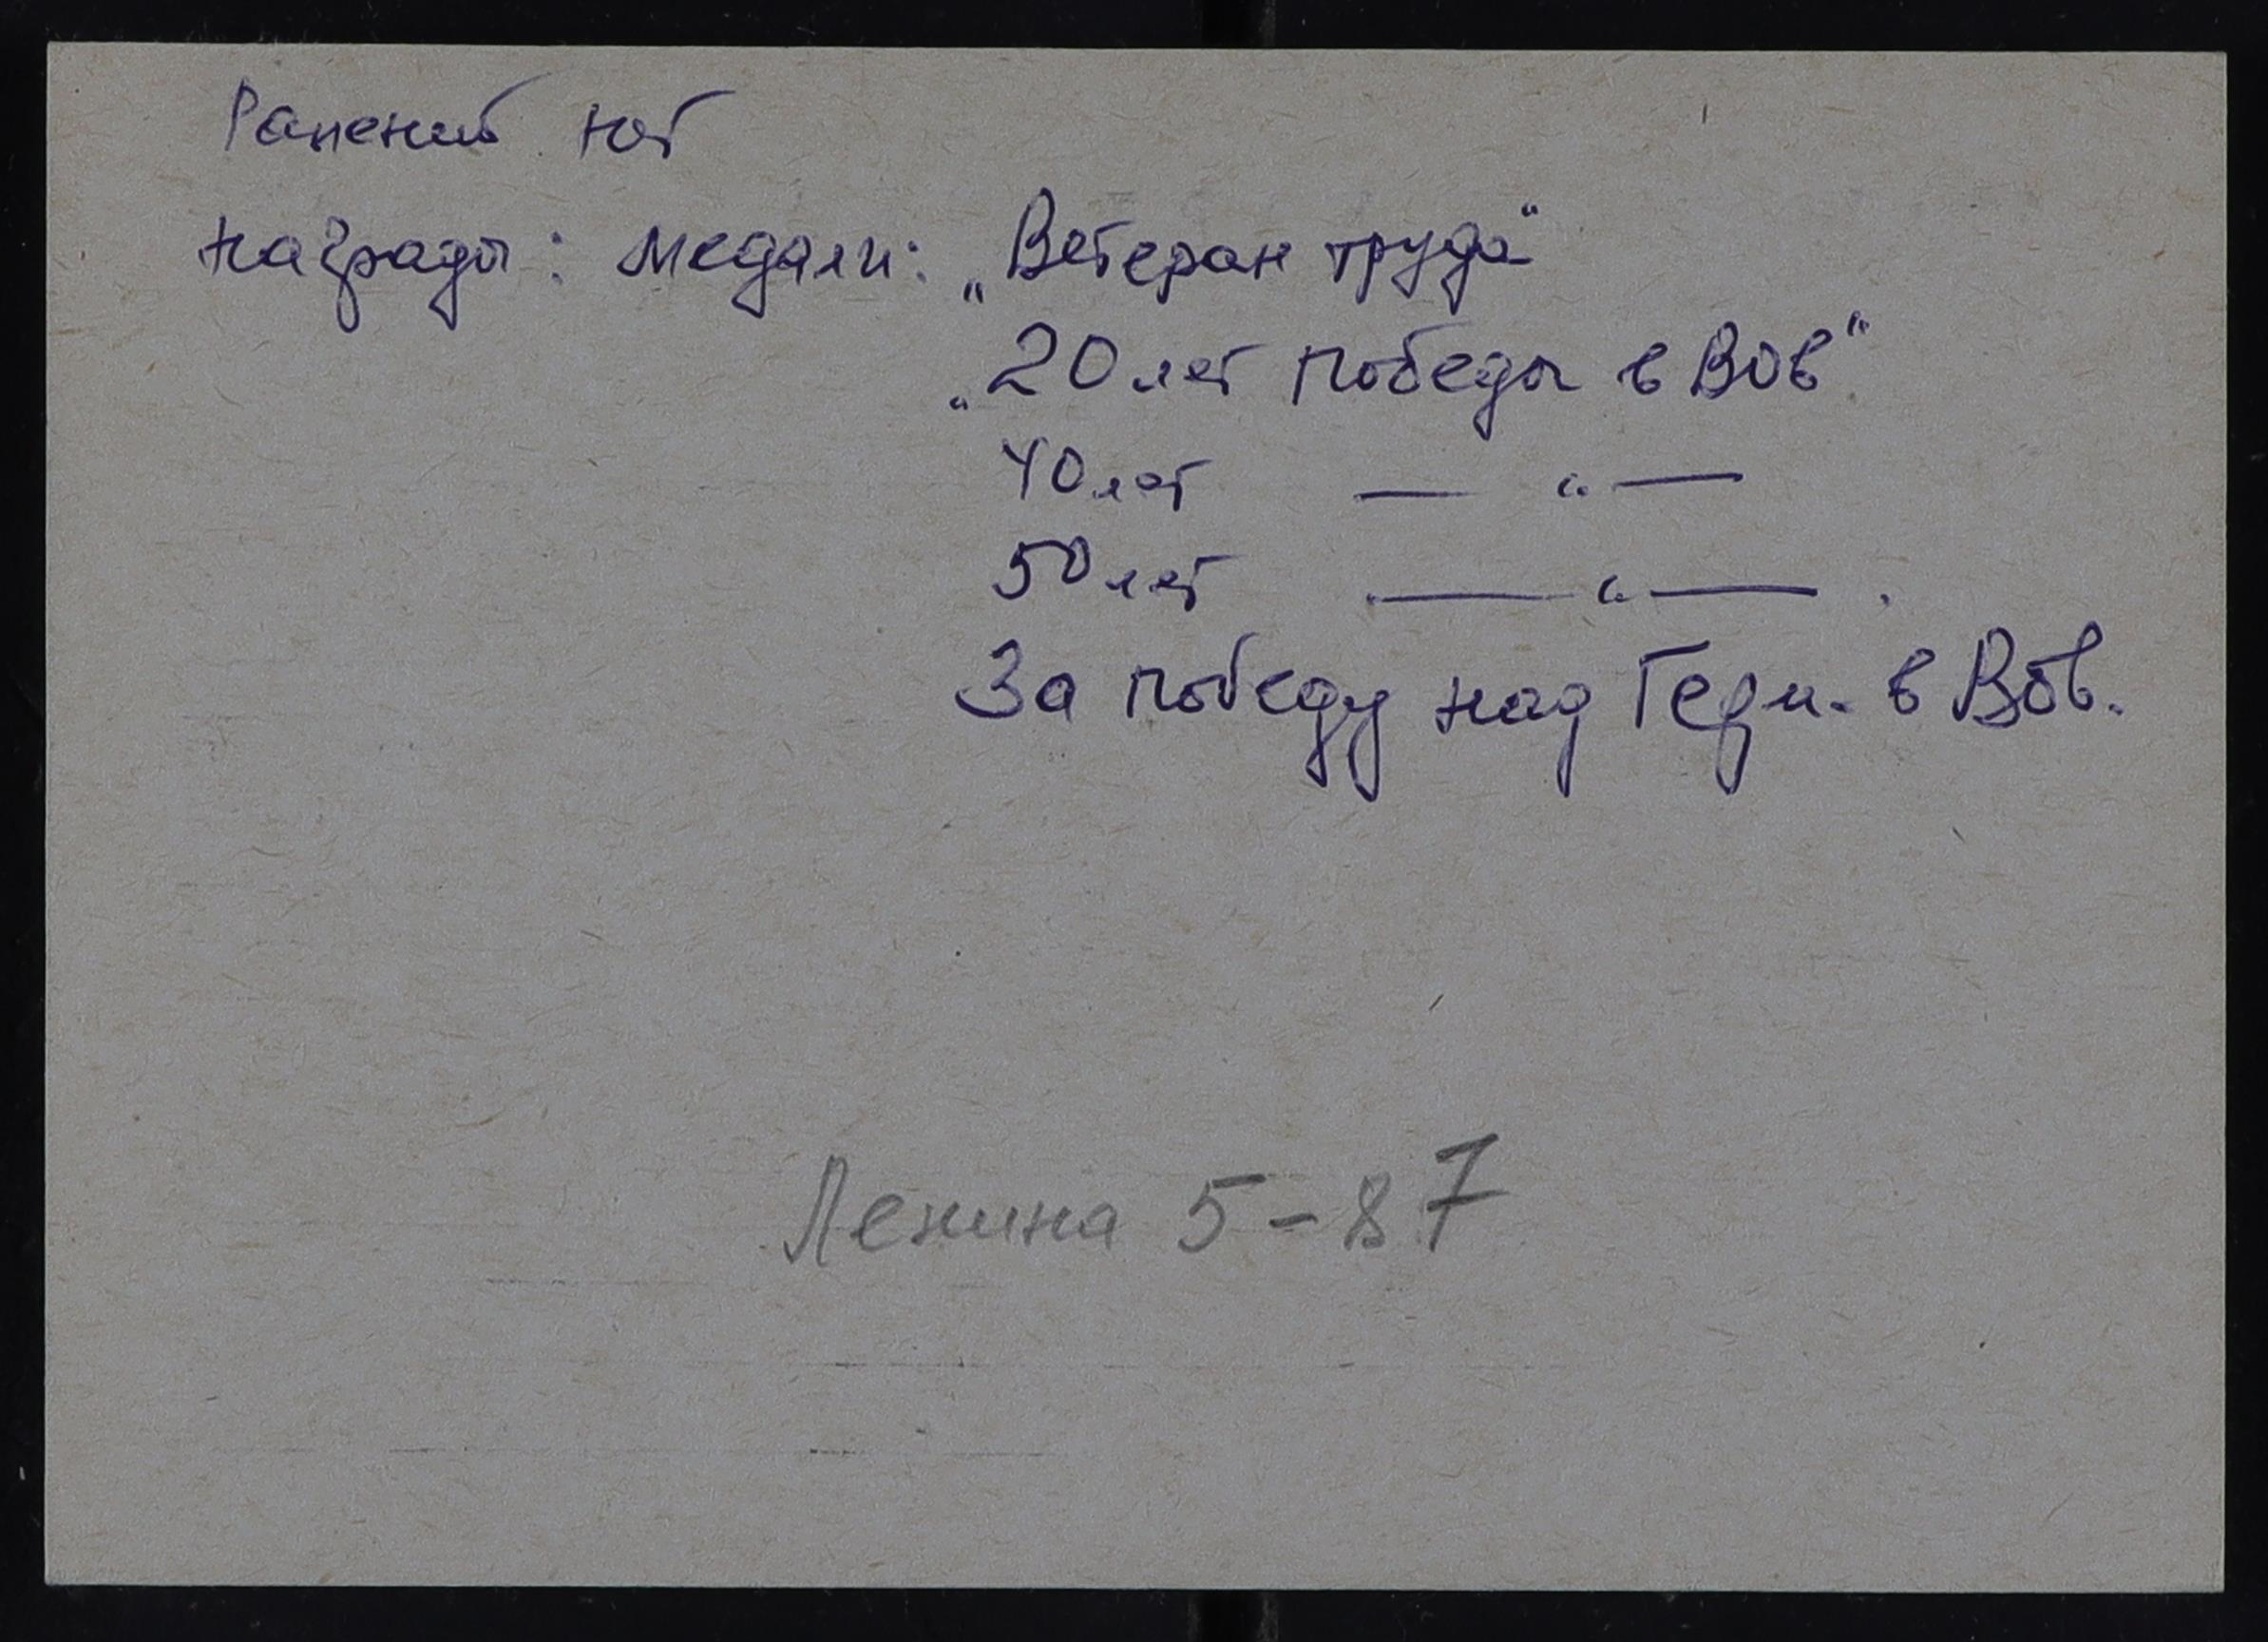 Ранений нет
Награды: медали: „Ветеран труда"
„20 лет победы в Вов"
40 лет — " —
50 лет — " — .
За победу над Герм. в Вов.
Ленина 5-87